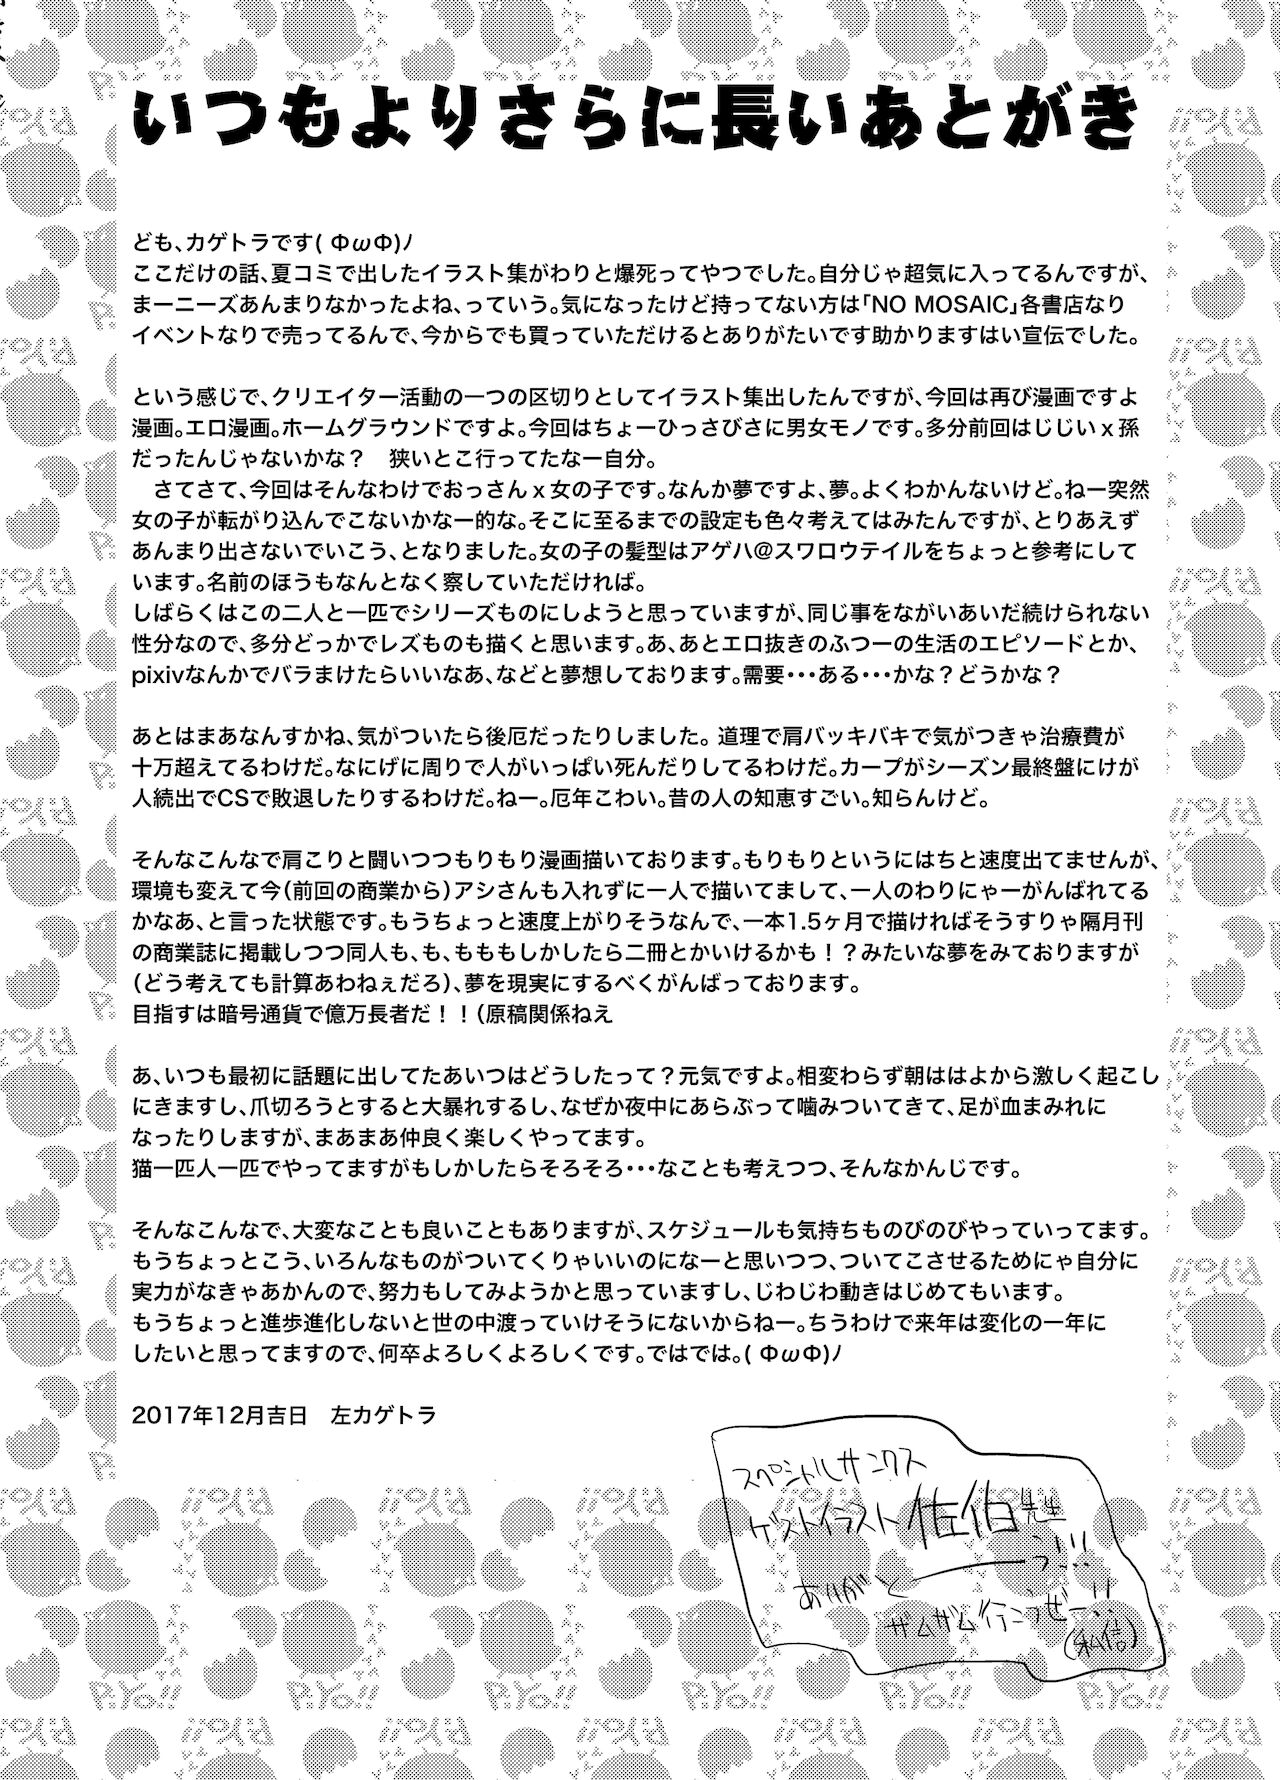 いつもよりさらに長いあとがき
ども、カゲトラです( ΦωΦ)ﾉ
ここだけの話、夏コミで出したイラスト集がわりと爆死ってやつでした。自分じゃ超気に入ってるんですが、
まーニーズあんまりなかったよね、っていう。気になったけど持ってない方は「NO MOSAIC」各書店なり
イベントなりで売ってるんで、今からでも買っていただけるとありがたいです助かりますはい宣伝でした。
という感じで、クリエイター活動の一つの区切りとしてイラスト集出したんですが、今回は再び漫画ですよ
漫画。エロ漫画。ホームグラウンドですよ。今回はちょーひっさびさに男女モノです。多分前回はじじいｘ孫
だったんじゃないかな？　狭いとこ行ってたなー自分。
　さてさて、今回はそんなわけでおっさんｘ女の子です。なんか夢ですよ、夢。よくわかんないけど。ねー突然
女の子が転がり込んでこないかなー的な。そこに至るまでの設定も色々考えてはみたんですが、とりあえず
あんまり出さないでいこう、となりました。女の子の髪型はアゲハ@スワロウテイルをちょっと参考にして
います。名前のほうもなんとなく察していただければ。
しばらくはこの二人と一匹でシリーズものにしようと思っていますが、同じ事をながいあいだ続けられない
性分なので、多分どっかでレズものも描くと思います。あ、あとエロ抜きのふつーの生活のエピソードとか、
pixivなんかでバラまけたらいいなあ、などと夢想しております。需要・・・ある・・・かな？どうかな？
あとはまあなんすかね、気がついたら後厄だったりしました。 道理で肩バッキバキで気がつきゃ治療費が
十万超えてるわけだ。なにげに周りで人がいっぱい死んだりしてるわけだ。カープがシーズン最終盤にけが
人続出でCSで敗退したりするわけだ。ねー。厄年こわい。昔の人の知恵すごい。知らんけど。
そんなこんなで肩こりと闘いつつもりもり漫画描いております。もりもりというにはちと速度出てませんが、
環境も変えて今（前回の商業から）アシさんも入れずに一人で描いてまして、一人のわりにゃーがんばれてる
かなあ、と言った状態です。もうちょっと速度上がりそうなんで、一本1.5ヶ月で描ければそうすりゃ隔月刊
の商業誌に掲載しつつ同人も、も、もももしかしたら二冊とかいけるかも！？みたいな夢をみておりますが
（どう考えても計算あわねぇだろ）、夢を現実にするべくがんばっております。
目指すは暗号通貨で億万長者だ！！（原稿関係ねえ
あ、いつも最初に話題に出してたあいつはどうしたって？元気ですよ。相変わらず朝ははよから激しく起こし
にきますし、爪切ろうとすると大暴れするし、なぜか夜中にあらぶって噛みついてきて、足が血まみれに
なったりしますが、まあまあ仲良く楽しくやってます。
猫一匹人一匹でやってますがもしかしたらそろそろ・・・なことも考えつつ、そんなかんじです。
そんなこんなで、大変なことも良いこともありますが、スケジュールも気持ちものびのびやっていってます。
もうちょっとこう、いろんなものがついてくりゃいいのになーと思いつつ、ついてこさせるためにゃ自分に
実力がなきゃあかんので、努力もしてみようかと思っていますし、じわじわ動きはじめてもいます。
もうちょっと進歩進化しないと世の中渡っていけそうにないからねー。ちうわけで来年は変化の一年に
したいと思ってますので、何卒よろしくよろしくです。ではでは。( ΦωΦ)ﾉ
2017年12月吉日　左カゲトラ
スペシャルサンクス
ゲストイラスト佐伯先生
ありがとーーーう!!!
ザムザム行こうぜー!!
(私信)